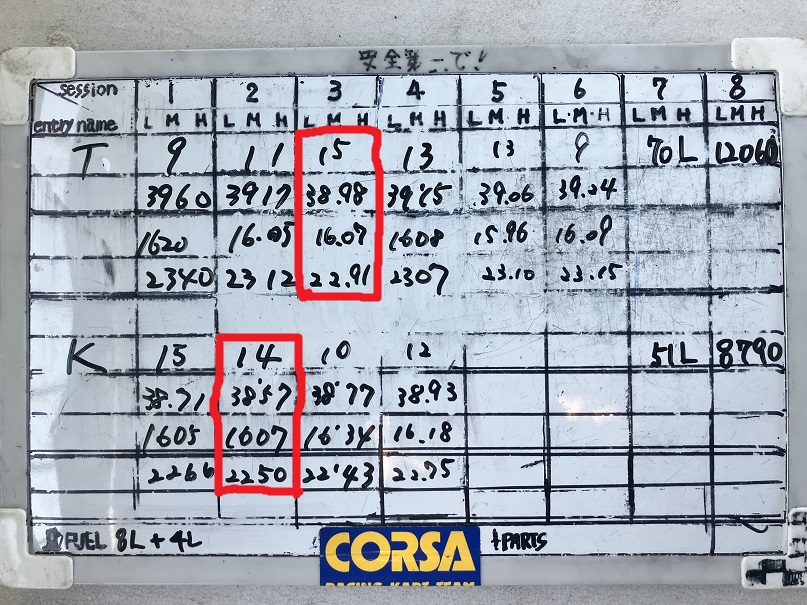 安全第一で!
session 1 2 3 4 5 6 7 8
entry name L M H L M H L M H L M H L M H L·M·H L M H L M H
T 9 11 15 13 13 9 70L 12060
3960 3917 38.98 39'15 39.06 39.04
1620 16.05 16.07 1608 15.96 16.09
2340 2312 22.91 2307 23.10 23.15
K 15 14 10 12 51L 8790
38.71 38'57 38'77 38.93
1605 1607 16'34 16.18
2266 2250 22'43 22.75
FUEL 8L + 4L
CORSA
RACING KART TEAM
+PARTS